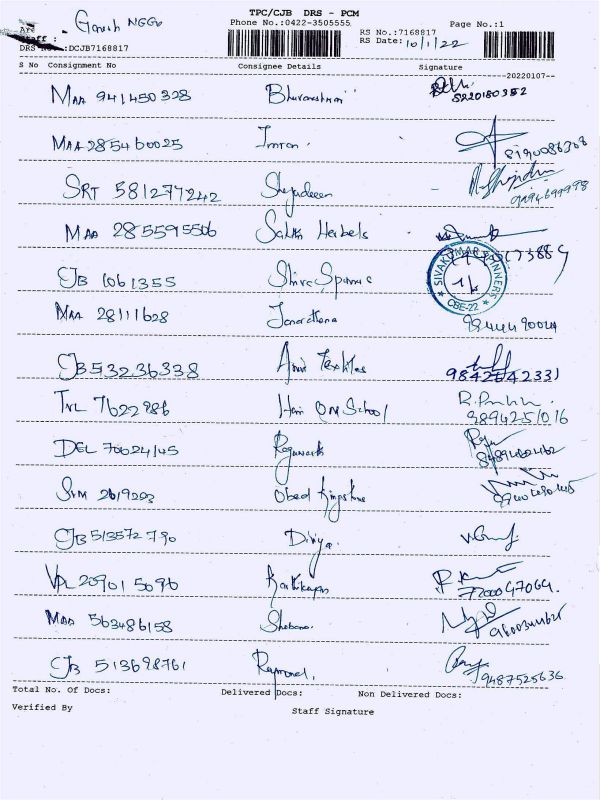 TPC/CJB DRS - PCM
Phone No.:0422-3505555 Page No.:1
Ganesh NGGO
RS No.:7168817
RS Date: 10/1/22
DRS No.:DCJB7168817
S No Consignment No Consignee Details Signature
20220107
MAA 941450328 Bhuvaneshwari
MAA 285460025 Imran
SRT 581277242
9994699998
MAA 285595506 Sakthi Herbels
CJB 1061355 Shiva Spinnig
SIVAKUMAR SPINNERS
CBE-22
MAA 28111628 Janarthana 9344490024
CJB 53236338 Anu Textiles
9842642331
TVL 7622986 Hari OM School
9894251016
DEL 70024145
SVM 2619223 Obed Kingstone
CJB 513572790 Divya
VPL 209015096 Karthikeyan
7200047064.
MAA 563486158 Shobana.
CJB 513698761 Raymond.
9487525636
Total No. Of Docs: Delivered Docs: Non Delivered Docs:
Verified By Staff Signature